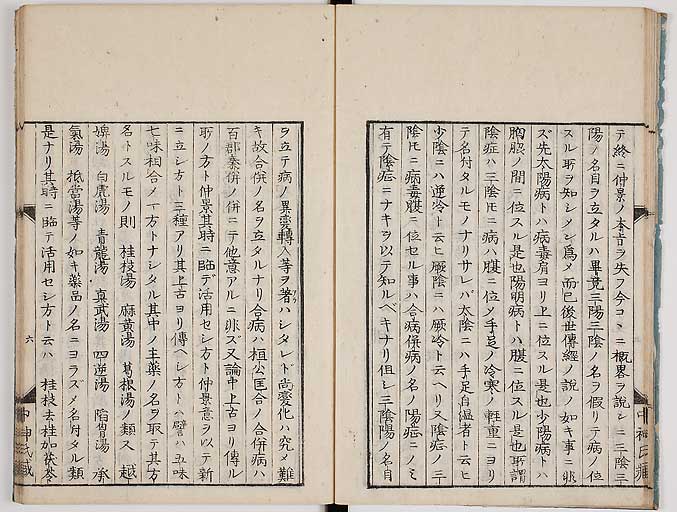 テ終ニ仲景ノ本旨ヲ失フ今コヽニ概畧ヲ説シニ三陰三
陽ノ名目ヲ立タルハ畢竟三陽三陰ノ名ヲ假リテ病ノ位
スル所ヲ知シメン爲メ而已後世傳經ノ説ノ如キ事ニ非
ズ先太陽病トハ病毒肩ヨリ上ニ位スル是也少陽病トハ
胸脇ノ間ニ位スル是也陽明病トハ腹ニ位スル是也所謂
陰症ハ三陰トモニ病ハ腹ニ位メ手足ノ冷寒ノ軽重ニヨリ
テ名付タルモノナリサレバ太陰ニハ手足自温者ト云ヒ
少陰ニハ逆冷ト云ヒ厥陰ニハ厥冷ト云ヘリ又陰症ノ三
陰トモニ病毒腹ニ位セル事ハ合病併病ノ名ノ陽症ニノミ
有テ陰症ニナキヲ以テ知ルベキナリ但シ三陰陽ノ名目
ヲ立テ病ノ異變轉入等ヲ著ハシタレト尚變化ハ究メ難
キ故合併ノ名ヲ立タルナリ合病ハ桓公匡合ノ合併病ハ
百郡秦併ノ併ニテ他意アルニ非ズ又論中上古ヨリ傳ル
所ノ方ト仲景其時ニ臨デ活用セシ方ト仲景意ヲ以テ新
ニ立シ方ト三種アリ其上古ヨリ傳ヘシ方トハ譬ハ五味
七味相合メ一方トナシタル其中ノ主藥ノ名ヲ取テ其方
名トスルモノ則 桂枝湯 麻黄湯 葛根湯ノ類ス 越
婢湯 白虎湯 青龍湯 真武湯 四逆湯 陷胷湯 承
氣湯 抵當湯等ノ如キ藥品ノ名ニヨラズメ名付タル類
是ナリ其時ニ臨テ活用セシ方ト云ハ 桂枝去桂加茯苓
六